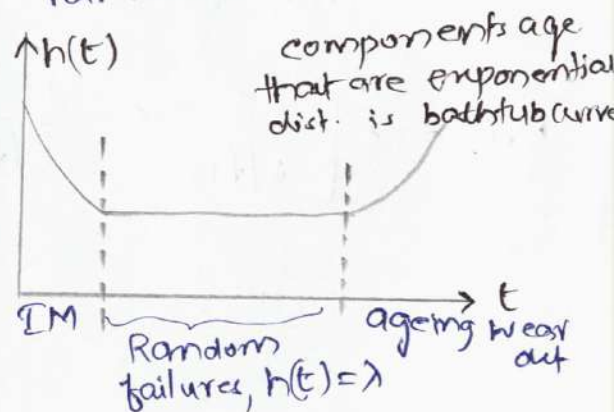 h(t)
components age
that are exponential
dist. is bathtub curve
t
IM
ageing wear
out
Random
failures, h(t) = λ